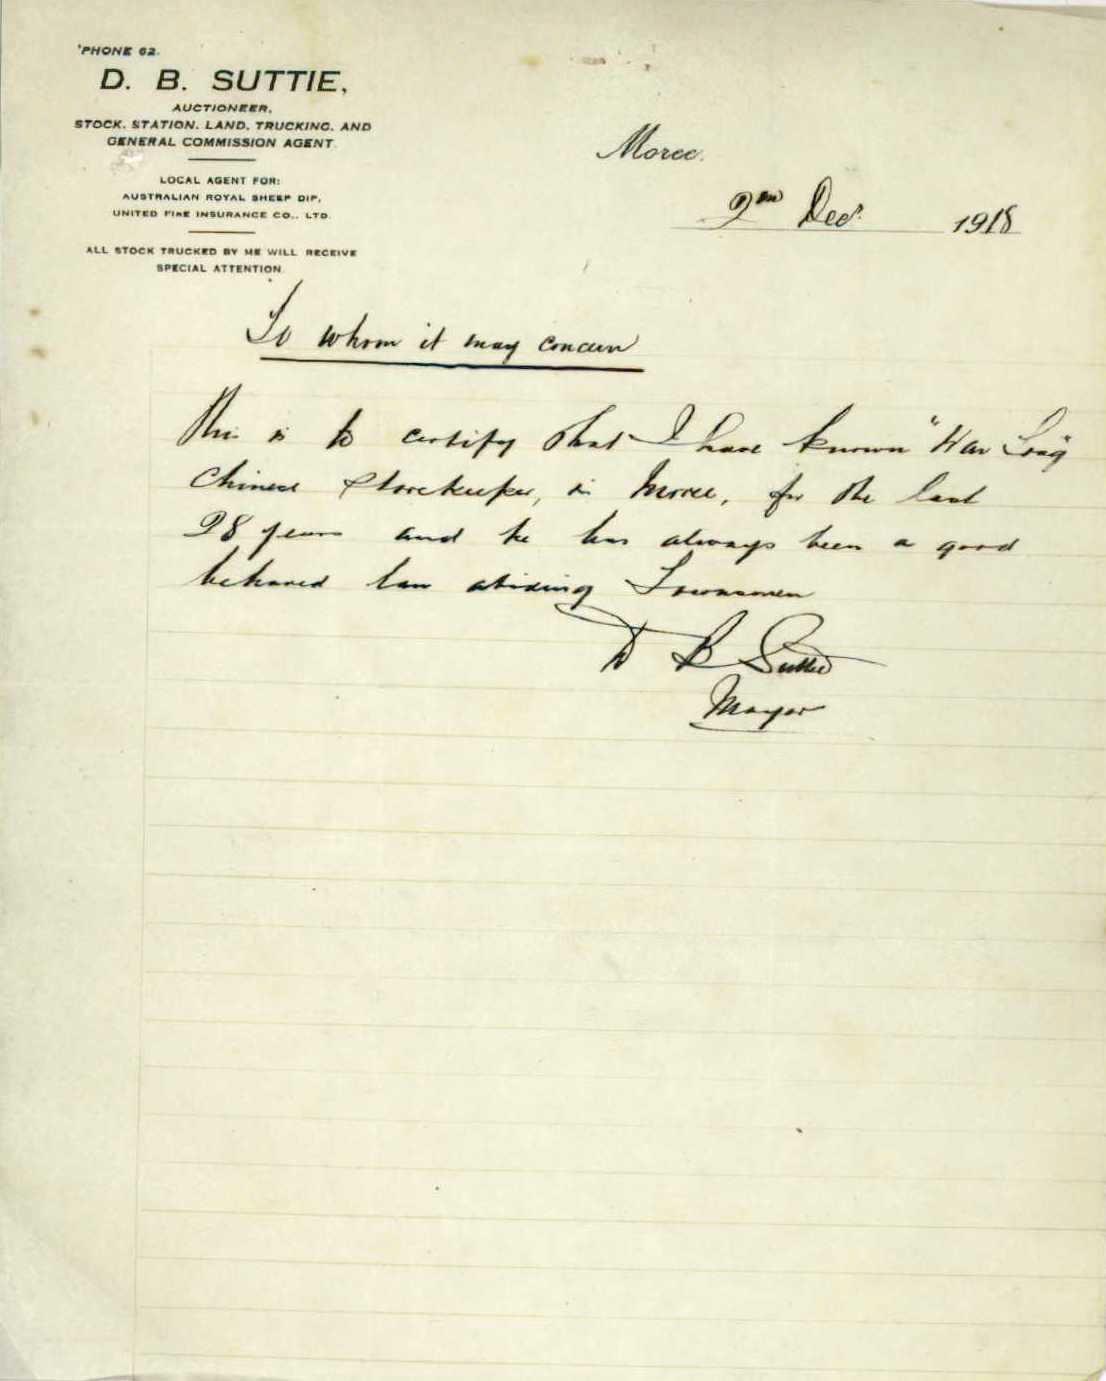 'PHONE 62.
D. B. SUTTIE,
AUCTIONEER,
STOCK, STATION, LAND, TRUCKING, AND
GENERAL COMMISSION AGENT.
LOCAL AGENT FOR:
AUSTRALIAN ROYAL SHEEP DIP,
UNITED FIRE INSURANCE CO., LTD.
ALL STOCK TRUCKED BY ME WILL RECEIVE
SPECIAL ATTENTION.
Moree,
2nd Decr. 1918
To whom it may concern
This is to certify that I have known "War Long"
Chinese Storekeeper, in Moree, for the last
28 years and he has always been a good
behaved law abiding Townsman
D B Suttie
Mayor